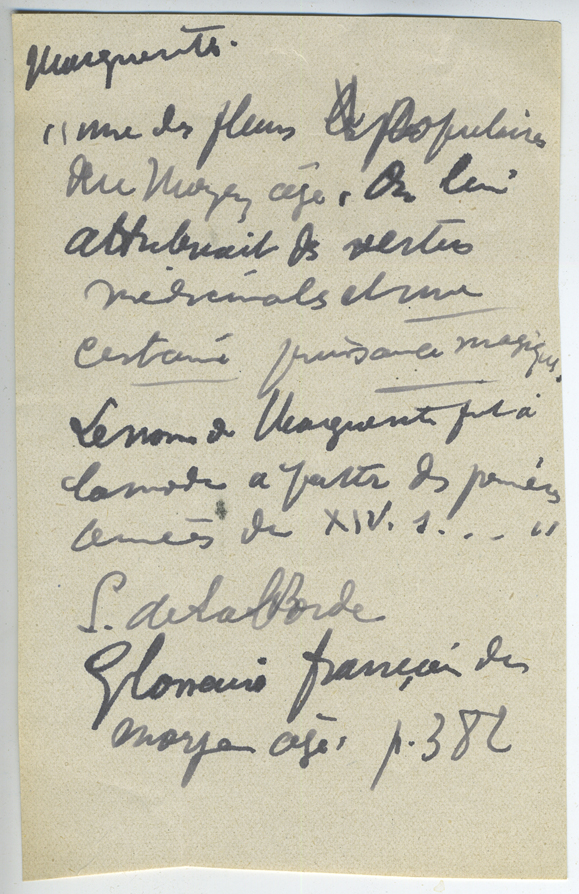 Marguerite.
"une des fleurs populaires
du Moyen âge. On lui
attribuait des vertus
médicinales et une
certaine puissance magique.
Le nom de Marguerite fut à
la mode a partir des premières
années du XIV. s. . . "
L. de La Borde
Glossaire français du
moyen âge. p. 382